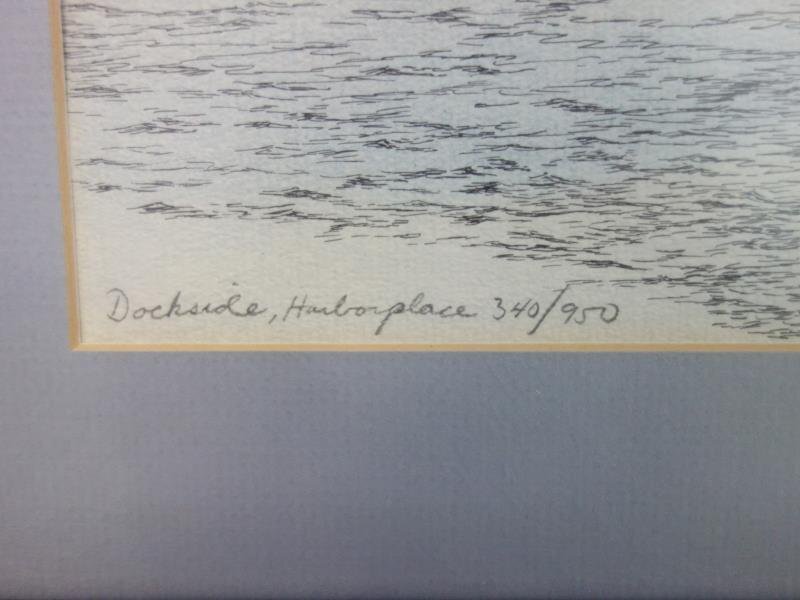 Dockside, Harborplace 340/950